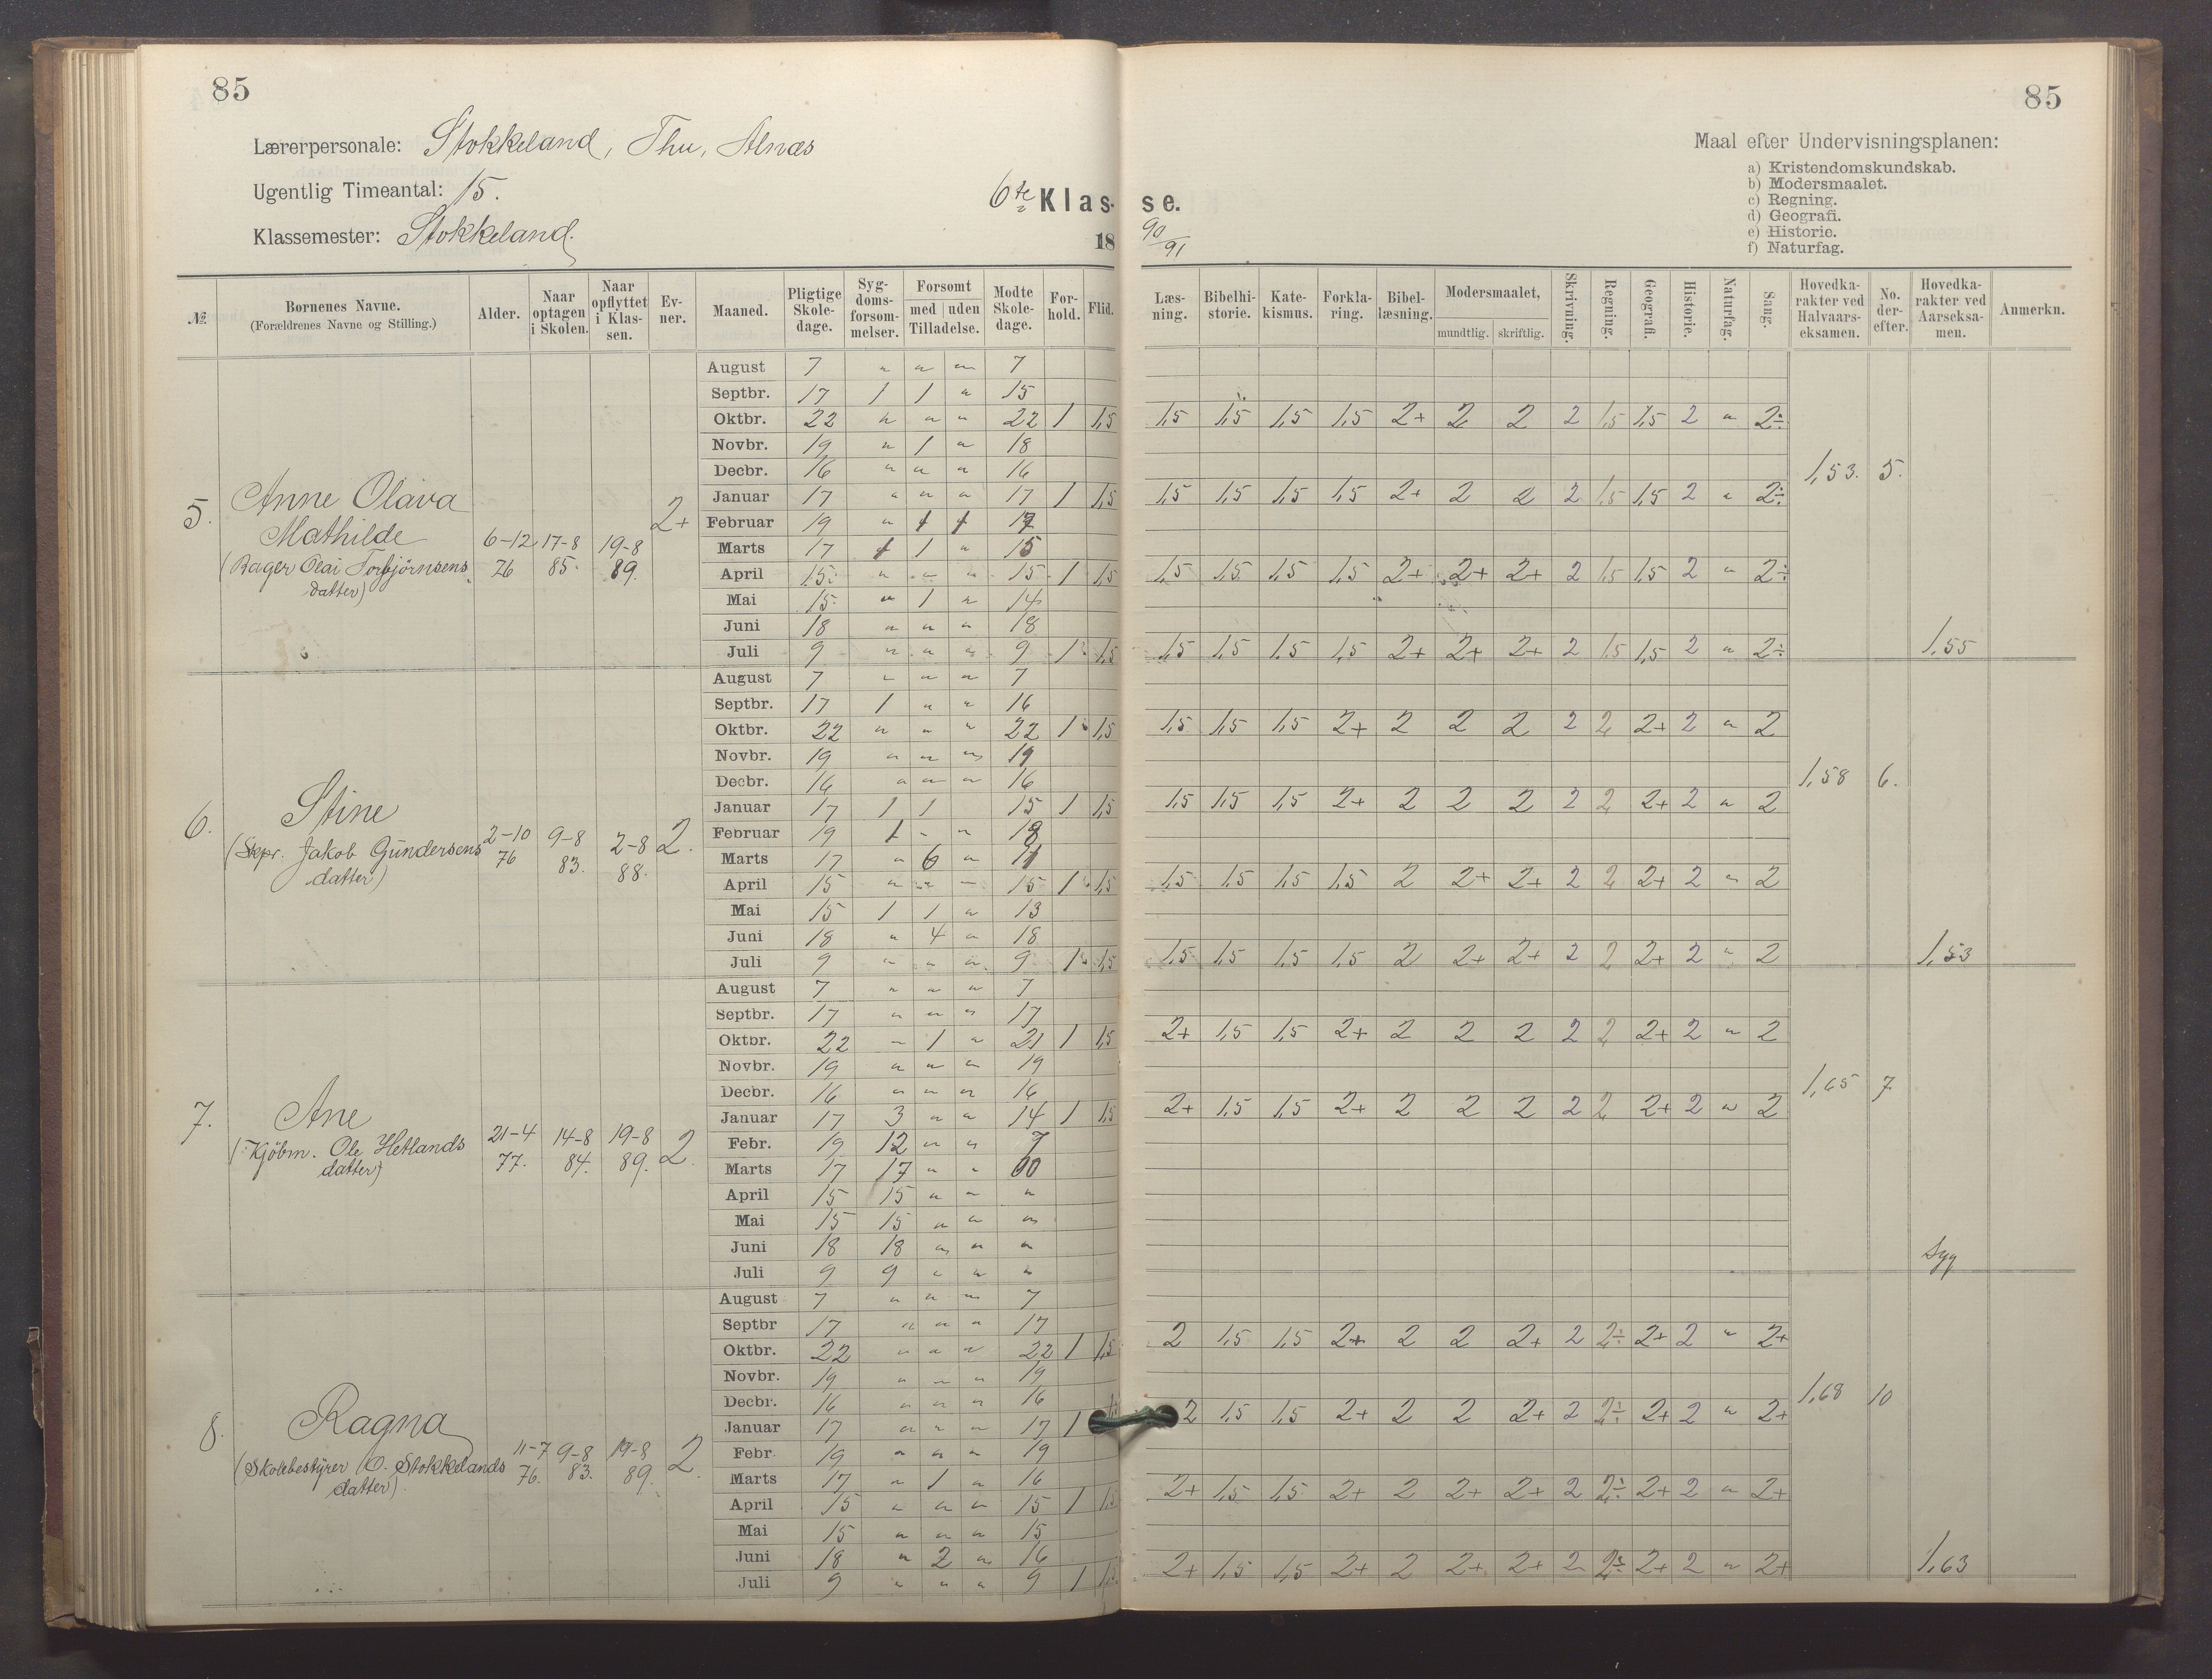 85
85
Lærerpersonale: Stokkeland, Thu, Alnæs
Ugentlig Timeantal: 15.
Klassemester: Stokkeland.
6te Klas- se.
18 90/91
Maal efter Undervisningsplanen:
a) Kristendomskundskab.
b) Modersmaalet.
c) Regning.
d) Geografi.
e) Historie.
f) Naturfag.
№ Børnenes Navne. (Forældrenes Navne og Stilling.) Alder. Naar optagen i Skolen. Naar opflyttet i Klas- sen. Ev- ner. Maaned. Pligtige Skole- dage. Syg- doms- forsøm- melser. Forsømt med uden Tilladelse. Mødte Skole- dage. For- hold. Flid. Læs- ning. Bibelhi- storie. Kate- kismus. Forkla- ring. Bibel- læsning. Modersmaalet, mundtlig. skriftlig. Skrivning. Regning. Geografi. Historie. Naturfag. Sang. Hovedka- rakter ved Halvaars- eksamen. No. der- efter. Hovedka- rakter ved Aarseksa- men. Anmerkn.
5. Anne Olava
Mathilde
(Bager Olai Torbjörnsens
datter)
6-12 76 17-8 85. 19-8 89. 2+
August 7 " " " 7
Septbr. 17 1 1 " 15
Oktbr. 22 " " " 22 1 1,5 1,5 1,5 1,5 1,5 2+ 2 2 2 1,5 1,5 2 " 2÷
Novbr. 19 " 1 " 18
Decbr. 16 " " " 16 1,53. 5.
Januar 17 " " " 17 1 1,5 1,5 1,5 1,5 1,5 2+ 2 2 2 1,5 1,5 2 " 2÷
Februar 19 " 1 1 17
Marts 17 1 1 " 15
April 15 " " " 15 1 1,5 1,5 1,5 1,5 1,5 2+ 2+ 2+ 2 1,5 1,5 2 " 2÷
Mai 15 " 1 " 14
Juni 18 " " " 18
Juli 9 " " " 9 1 1,5 1,5 1,5 1,5 1,5 2+ 2+ 2+ 2 1,5 1,5 2 " 2÷ 1,55
6. Stine
(Skpr. Jakob Gundersens
datter)
2-10 76 9-8 83. 2-8 88. 2.
August 7 " " " 7
Septbr. 17 1 " " 16
Oktbr. 22 " " " 22 1 1,5 1,5 1,5 1,5 2+ 2 2 2 2 2 2+ 2 " 2
Novbr. 19 " " " 19
Decbr. 16 " " " 16 1,58 6.
Januar 17 1 1 15 1 1,5 1,5 1,5 1,5 2+ 2 2 2 2 2 2+ 2 " 2
Februar 19 1 " " 18
Marts 17 " 6 " 11
April 15 " " " 15 1 1,5 1,5 1,5 1,5 1,5 2 2+ 2+ 2 2 2+ 2 " 2
Mai 15 1 1 " 13
Juni 18 " 4 " 18
Juli 9 " " " 9 1 1,5 1,5 1,5 1,5 1,5 2 2+ 2+ 2 2 2+ 2 " 2 1,53
7. Ane
(Kjöbm. Ole Hetlands
datter)
21-4 77. 14-8 84. 19-8 89. 2.
August 7 " " " 7
Septbr. 17 " " " 17
Oktbr. 22 " 1 " 21 1 1,5 2+ 1,5 1,5 2+ 2 2 2 2 2 2+ 2 " 2
Novbr. 19 " " " 19
Decbr. 16 " " " 16 1,65 7
Januar 17 3 " " 14 1 1,5 2+ 1,5 1,5 2+ 2 2 2 2 2 2+ 2 " 2
Febr. 19 12 " " 7
Marts 17 17 " " 00
April 15 15 " " "
Mai 15 15 " " "
Juni 18 18 " " " Syg
Juli 9 9 " " "
8. Ragna
(Skolebestyrer O. Stokkelands
datter)
11-7 76. 9-8 83. 19-8 89. 2.
August 7 " " " 7
Septbr 17 " " " 17
Oktbr. 22 " " " 22 1 1,5 2 1,5 1,5 2+ 2 2 2+ 2 2÷ 2+ 2 " 2+
Novbr. 19 " " " 19
Decbr. 16 " " " 16 1,68 10
Januar 17 " " " 17 1 2 1,5 1,5 2+ 2 2 2+ 2 2÷ 2+ 2 " 2+
Febr 19 " " " 19
Marts 17 " 1 " 16
April 15 " " " 15 1 1,5 2+ 1,5 1,5 2+ 2 2+ 2+ 2 2÷ 2+ 2 " 2+
Mai 15 " " " 15
Juni 18 " 2 " 16
Juli 9 " " " 9 1 1,5 2+ 1,5 1,5 2+ 2 2+ 2+ 2 2÷ 2+ 2 " 2+ 1,63